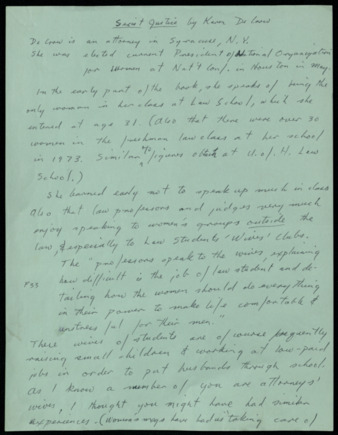 Sexist Justice by Karen De Crow
De Crow is an attorney in Syracuse, N.Y.
She was elected current President of National Organization
for Women at Nat'l Conf. in Houston in May
In the early part of the book, she speaks of being the
only woman in her class at Law School, which she
entered at age 28 (Also that there were over 30
women in the freshman law class at her school
in 1973. Similar figures at U. of H. Law
School.)
She learned early not to speak up much in class
Also that law professors and judges very much
enjoy speaking to women's groups outside the
law, & especially to Law Students' Wives' Clubs.
The "professors speak to the wives, explaining
how difficult is the job of law student and de-
tailing how the women should do everything
in their power to make life comfortable &
unstressful for their men."
These wives of students are of course frequently
raising small children & working at low-paid
jobs in order to put husbands through school.
As I know a number of you are attorneys'
wives, I thought you might have had similar
experiences. (Women may have had as "taking care of